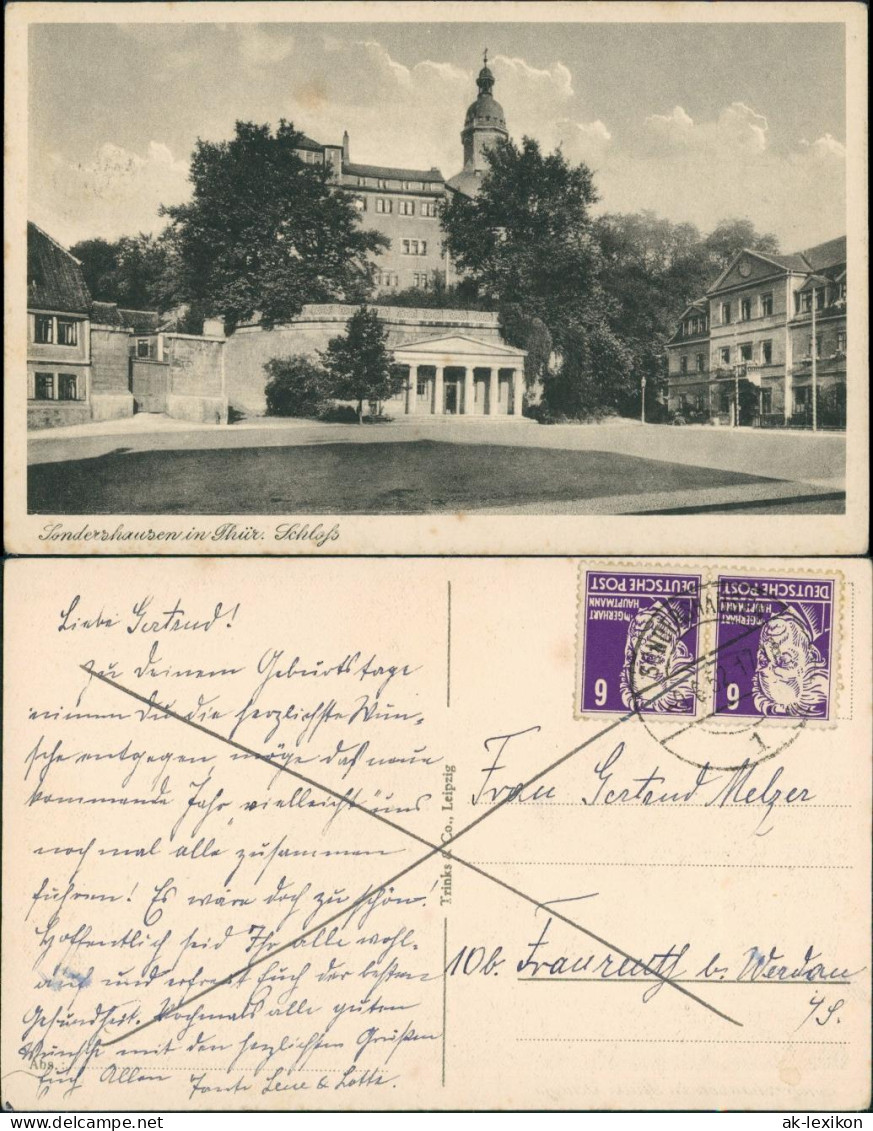 Sondershausen in Thür. Schloß
Liebe Gertrud!
Zu Deinem Geburtstage
nimm Du die herzlichste Wün-
sche entgegen, möge daß neue
kommende Jahr, vielleicht uns
noch mal alle zusammen
führen! Es wäre doch zu schön!
Hoffentlich seid Ihr alle wohl-
auf und erfreut Euch der besten
Gesundheit. Nochmals alle guten
Wünsche mit den herzlichsten Grüßen
Abs.:
Euch Allen Tante Lene & Lotte.
Trinks & Co., Leipzig
DEUTSCHE POST
GERHART
HAUPTMANN
6
DEUTSCHE POST
GERHART
HAUPTMANN
6
1
Frau Gertrud Melzer
10b. Fraureuth b. Werdau
i/S.
ak-lexikon
ak-lexikon.com